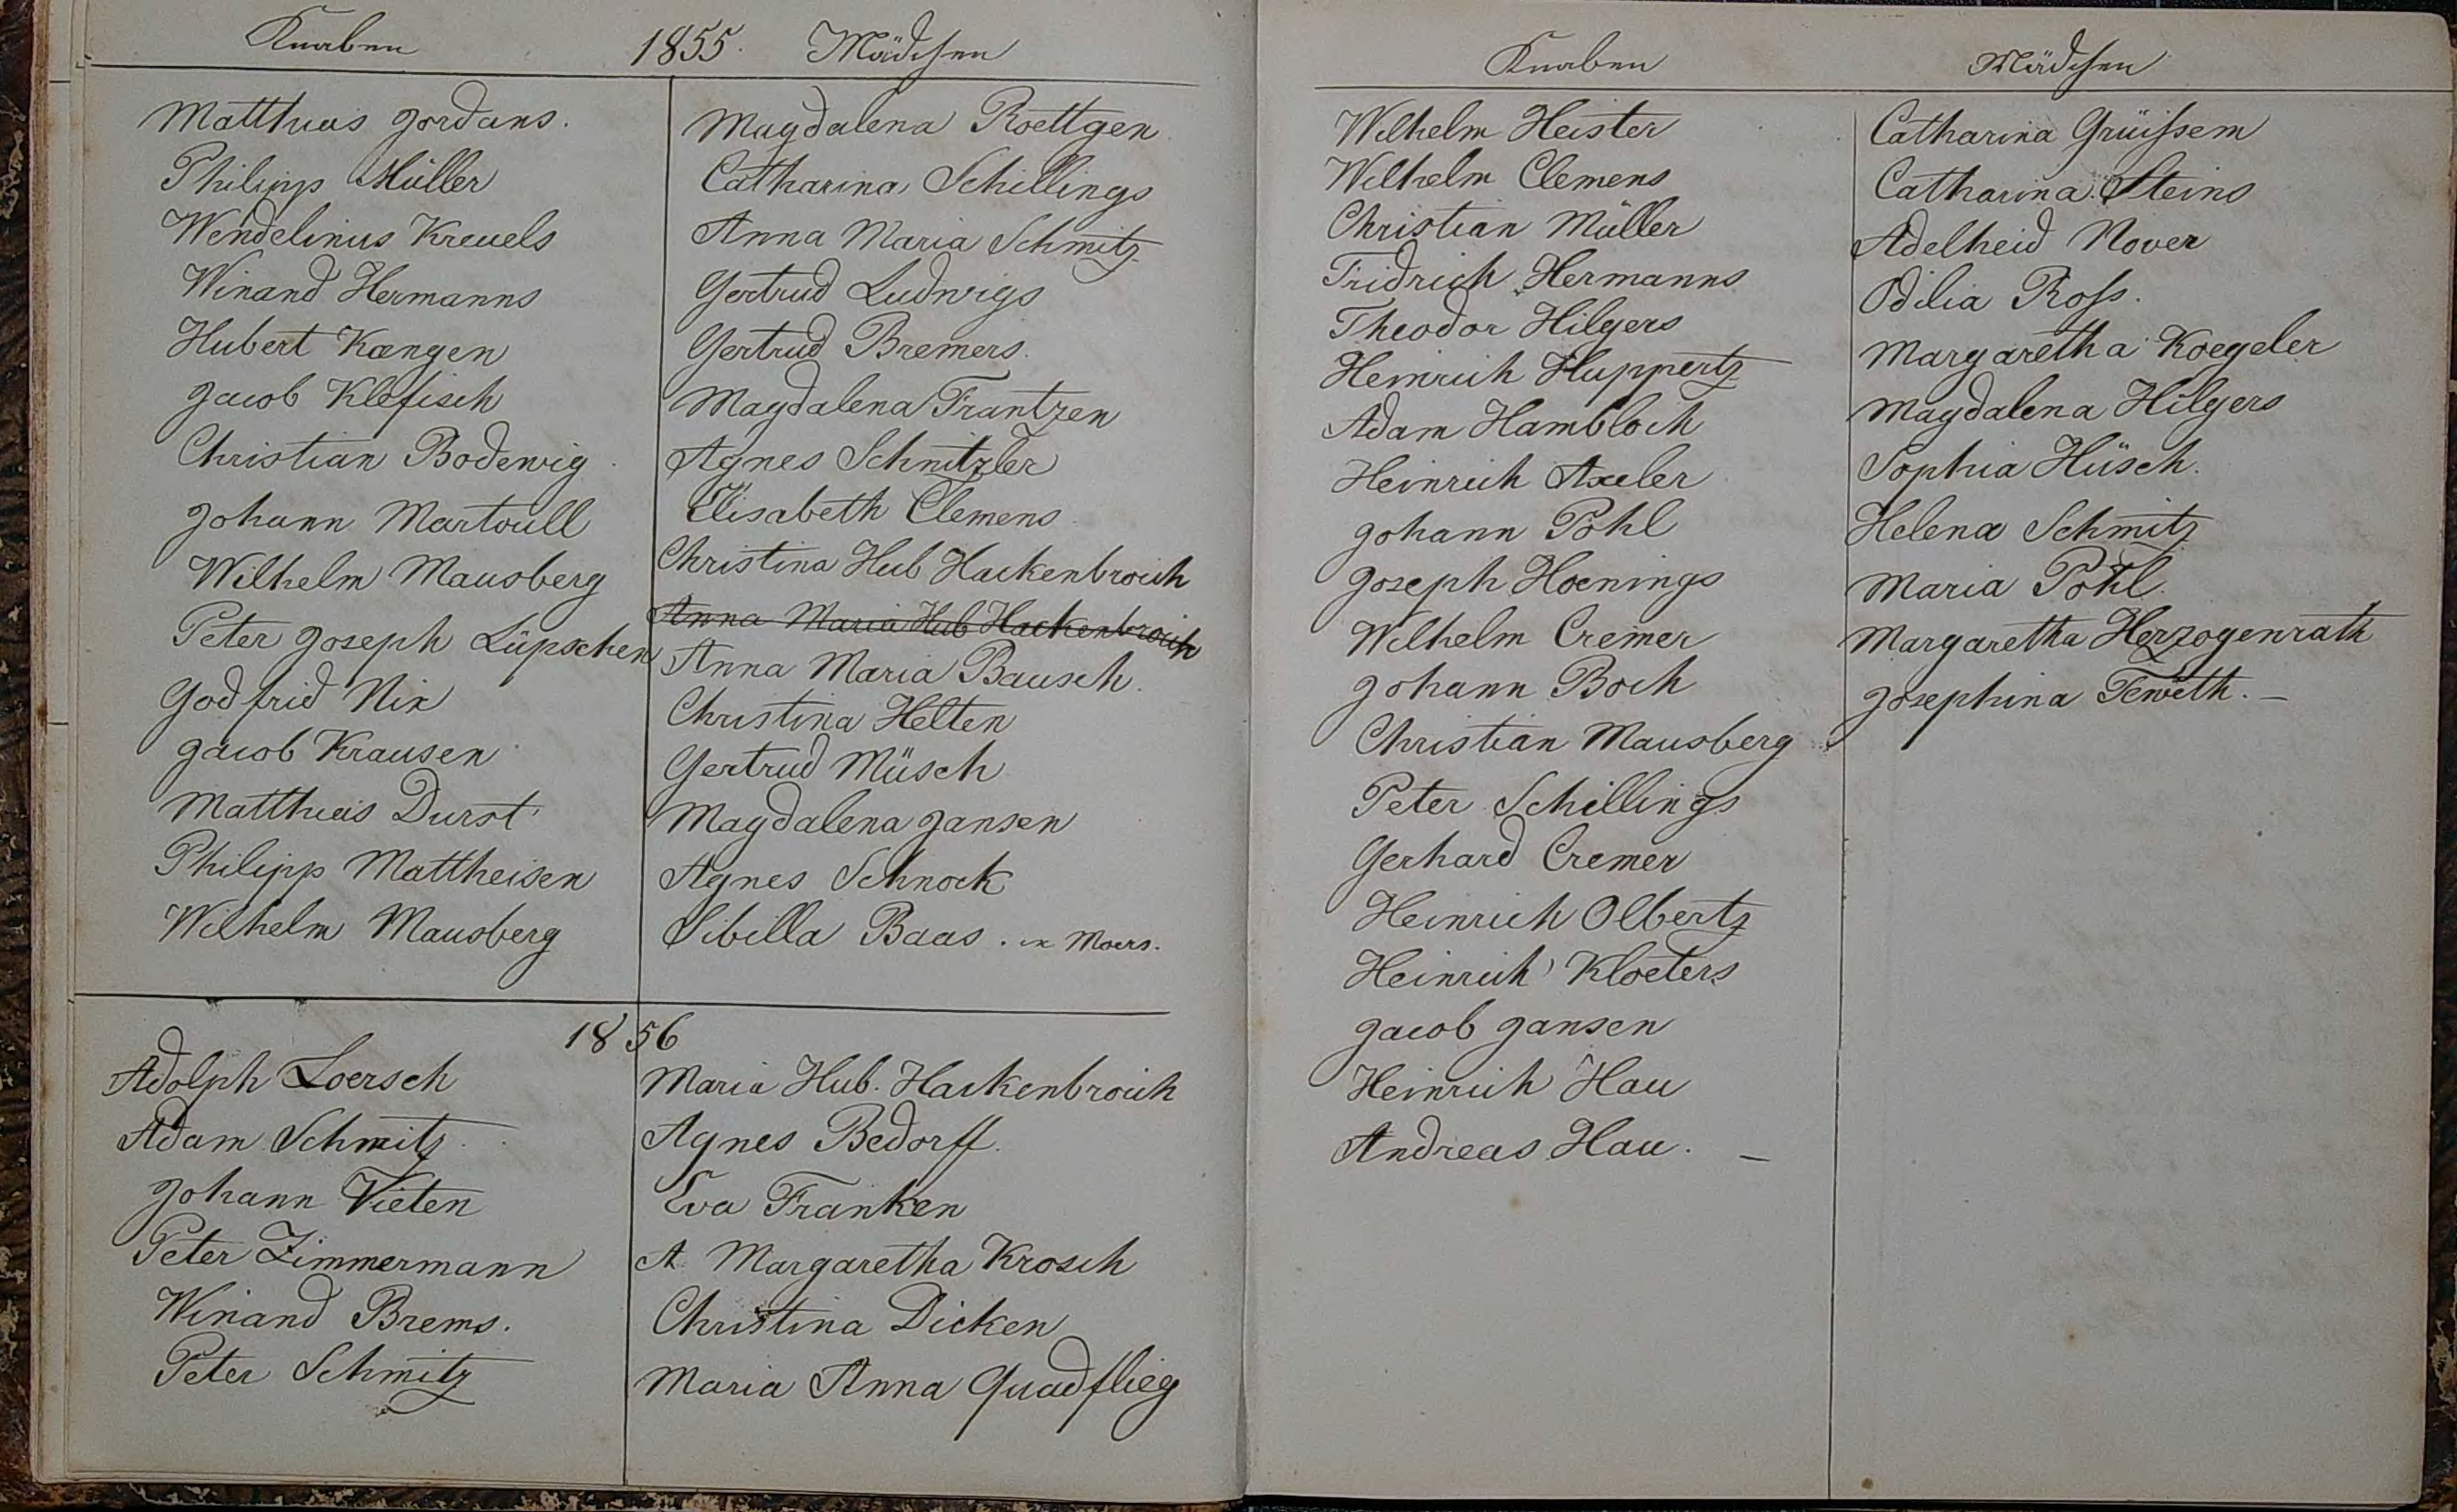 Knaben 1855. Mädchen
Matthias Jordans.
Philipp Müller
Wendelinus Kreuels
Winand Hermanns
Hubert Kængen
Jacob Klefisch
Christian Bodewig
Johann Martoull
Wilhelm Mausberg
Peter Joseph Lüpschen
Godfrid Nix
Jacob Krausen
Matthias Durst
Philipp Mattheisen
Wilhelm Mausberg
Magdalena Roettgen
Catharina Schillings
Anna Maria Schmitz
Gertrud Ludwigs
Gertrud Bremers.
Magdalena Frantzen
Agnes Schnitzler
Elisabeth Clemens
Christina Hub Hackenbroich
Anna Maria Hub Hackenbroich
Anna Maria Bausch.
Christina Helten
Gertrud Müsch
Magdalena Jansen
Agnes Schnock
Sibilla Baas. in Moers.
1856
Adolph Loersch
Adam Schmitz
Johann Vieten
Peter Zimmermann
Winand Brems.
Peter Schmitz
Maria Hub. Hackenbroich
Agnes Bedorff.
Eva Franken
A. Margaretha Krosch
Christina Dicken
Maria Anna Quadflieg
Knaben Mädchen
Wilhelm Heister
Wilhelm Clemens
Christian Müller
Fridrich Hermanns
Theodor Hilgers
Heinrich Huppertz
Adam Hambloch
Heinrich Axeler
Johann Pohl
Joseph Hoenings
Wilhelm Cremer
Johann Boch
Christian Mausberg
Peter Schillings
Gerhard Cremer
Heinrich Olbertz
Heinrich Kloeters
Jacob Jansen
Heinrich Hau
Andreas Hau. —
Catharina Grüißem
Catharina Steins
Adelheid Nover
Odilia Roß.
Margaretha Koegeler
Magdalena Hilgers
Sophia Hüsch.
Helena Schmitz
Maria Pohl.
Margaretha Herzogenrath
Josephina Teweth. —